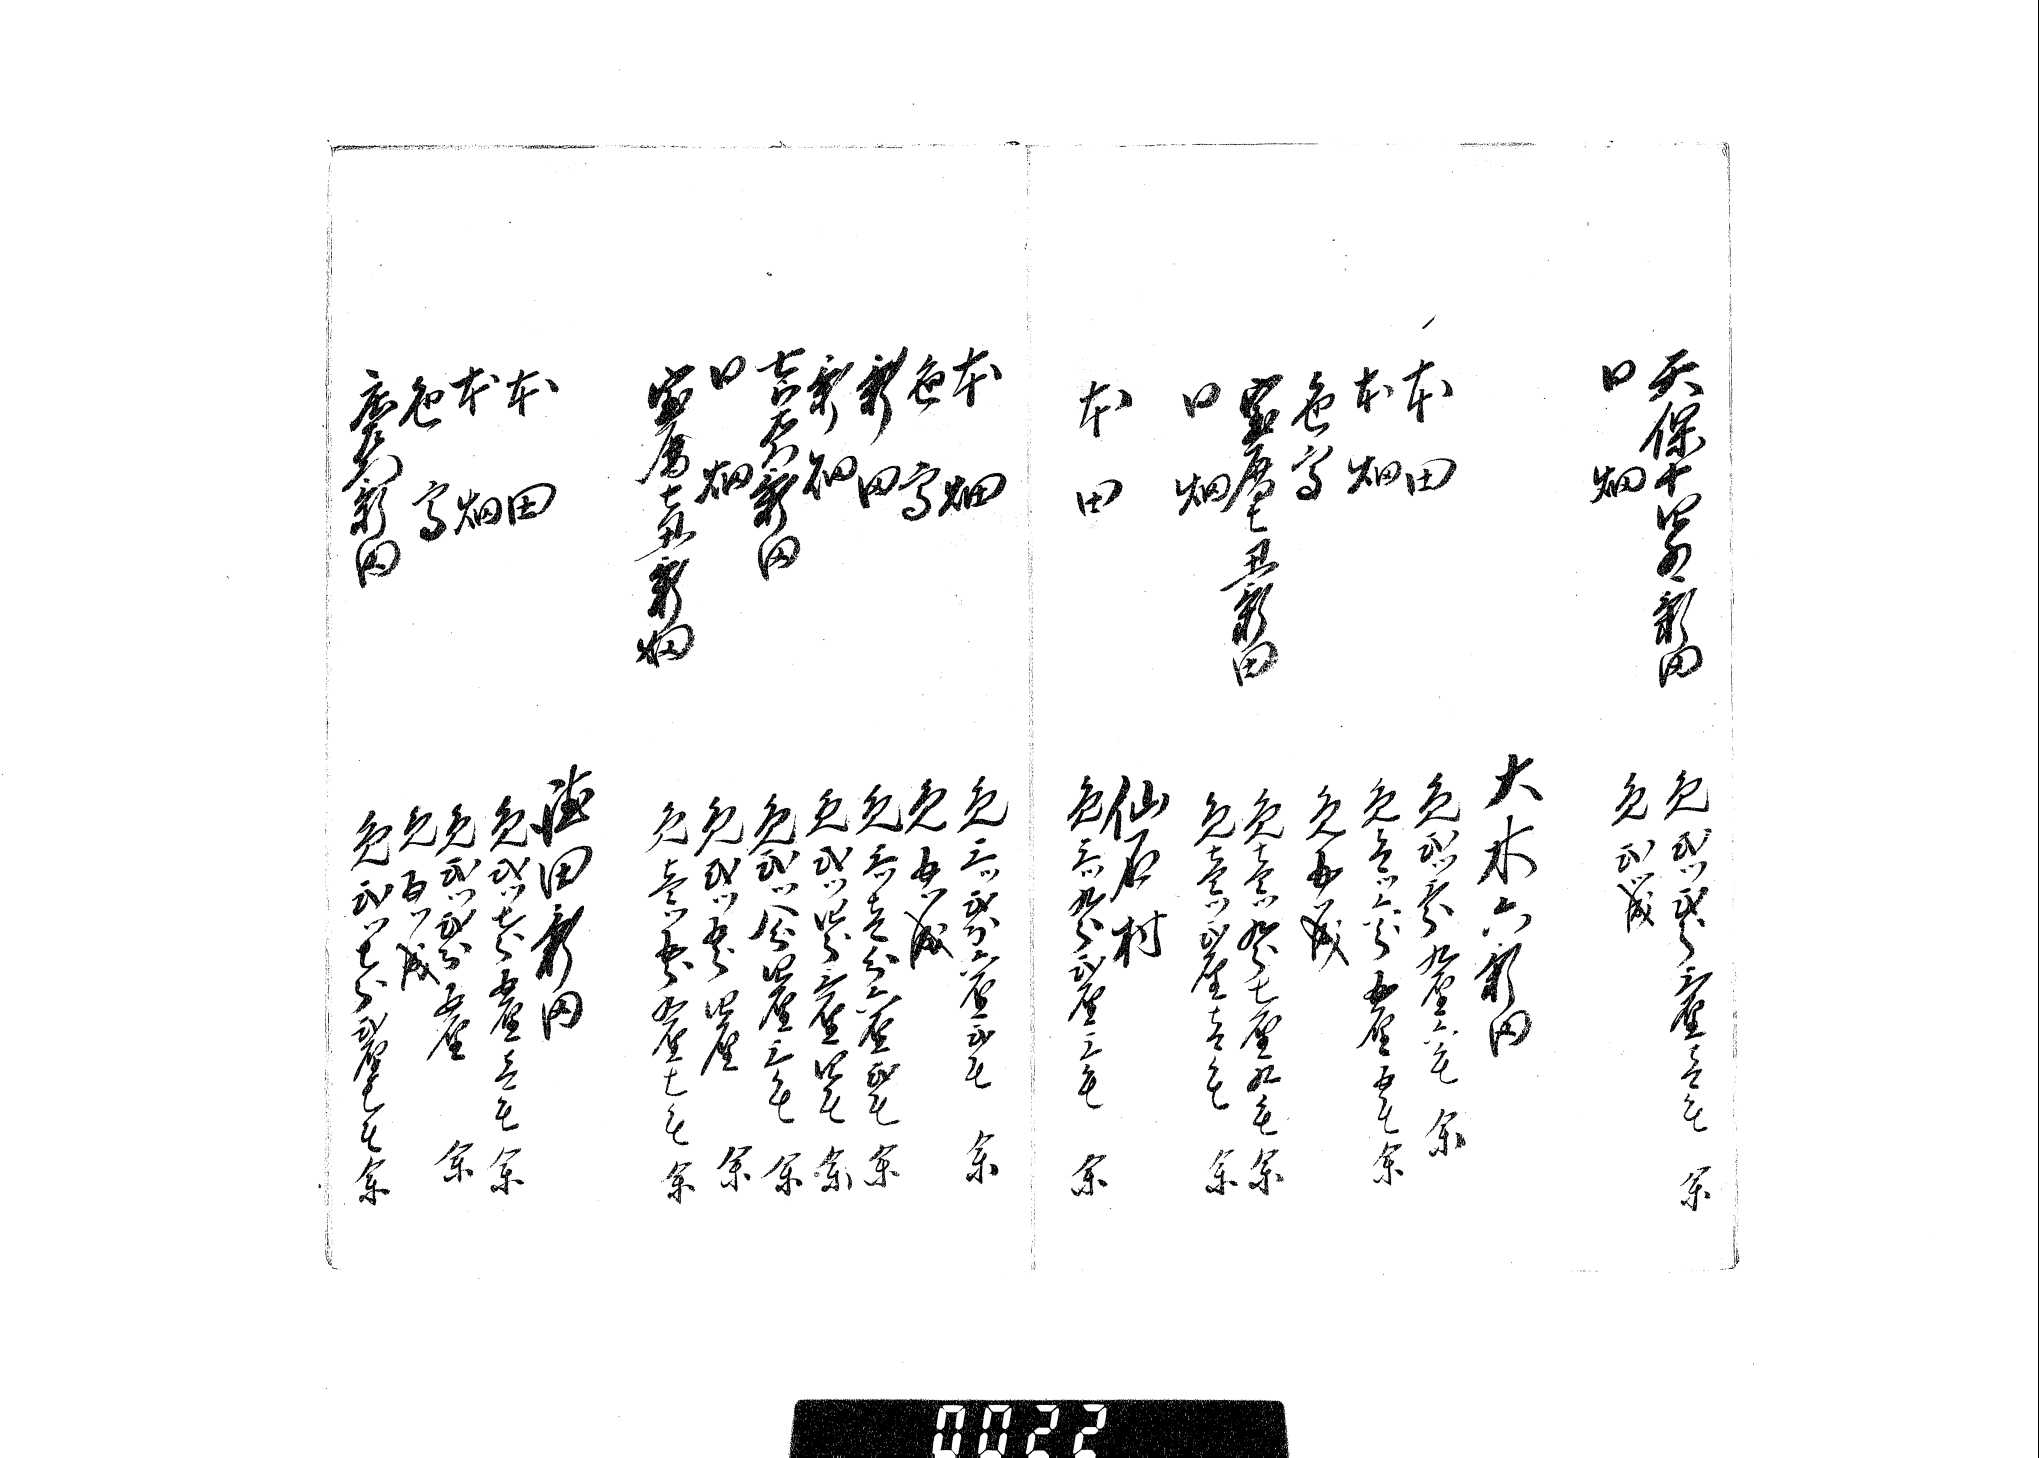 天保十四卯新田 免弐ツ弐分三厘壱毛 余
同 畑 免弐ツ成
大木六新田
本田 免弐ツ壱分九厘六毛 余
本畑 免壱ツ六分五厘五毛 余
色高 免五ツ成
宝暦七丑新田 免壱ツ九分七厘九毛 余
同 畑 免壱ツ弐厘壱毛 余
仙石村
本田 免三ツ九分弐厘三毛 余
本畑 免三ツ弐分六厘弐毛 余
色高 免五ツ成
新田 免三ツ壱分六厘弐毛 余
新畑 免弐ツ四分三厘四毛 余
新田 免弐ツ八分四厘三毛 余
同 畑 免弐ツ五分四厘 余
宝暦七丑新畑 免壱ツ五分五厘七毛 余
田新田
本田 免弐ツ七分五厘壱毛 余
本畑 免弐ツ弐分五厘 余
色高 免五ツ成
新田 免弐ツ七分弐厘七毛 余
0022